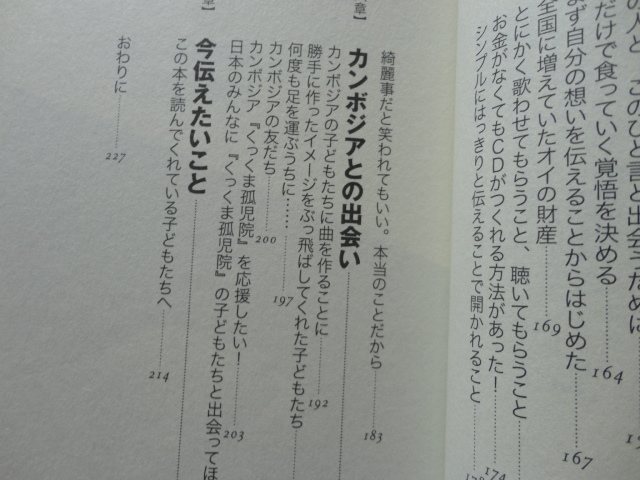 の人と、このひと言と出会うために
だけで食っていく覚悟を決める 164
まず自分の想いを伝えることからはじめた 167
全国に増えていたオイの財産 169
とにかく歌わせてもらうこと、聴いてもらうこと
お金がなくてもCDがつくれる方法があった! 174
シンプルにはっきりと伝えることで開かれること
綺麗事だと笑われてもいい。本当のことだから 183
章】 カンボジアとの出会い
カンボジアの子どもたちに曲を作ることに 192
勝手に作ったイメージをぶっ飛ばしてくれた子どもたち
何度も足を運ぶうちに…… 197
カンボジアの友だち 200
カンボジア『くっくま孤児院』を応援したい! 203
日本のみんなに『くっくま孤児院』の子どもたちと出会ってほ
章】 今伝えたいこと
この本を読んでくれている子どもたちへ 214
おわりに 227